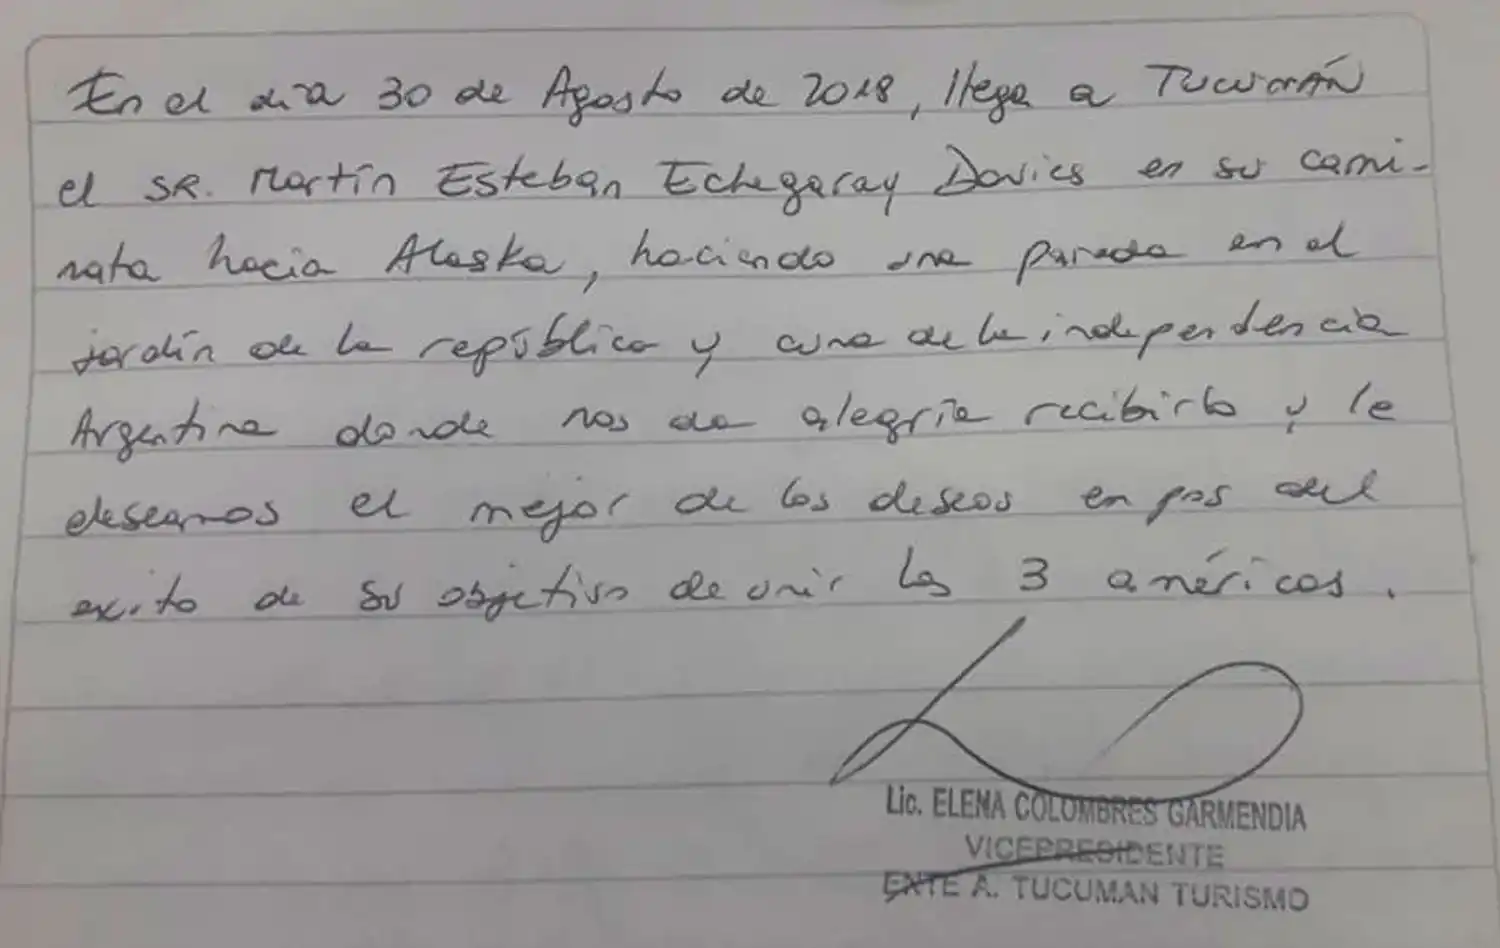 En el día 30 de Agosto de 2018, llega a Tucumán
el SR. Martín Esteban Echegaray Davies en su cami-
nata hacia Alaska, haciendo una parada en el
jardín de la república y cuna de la independencia
Argentina donde nos da alegría recibirlo y le
deseamos el mejor de los deseos en pos del
exito de su objetivo de unir las 3 américas.
Lic. ELENA COLOMBRES GARMENDIA
VICEPRESIDENTE
ENTE A. TUCUMAN TURISMO